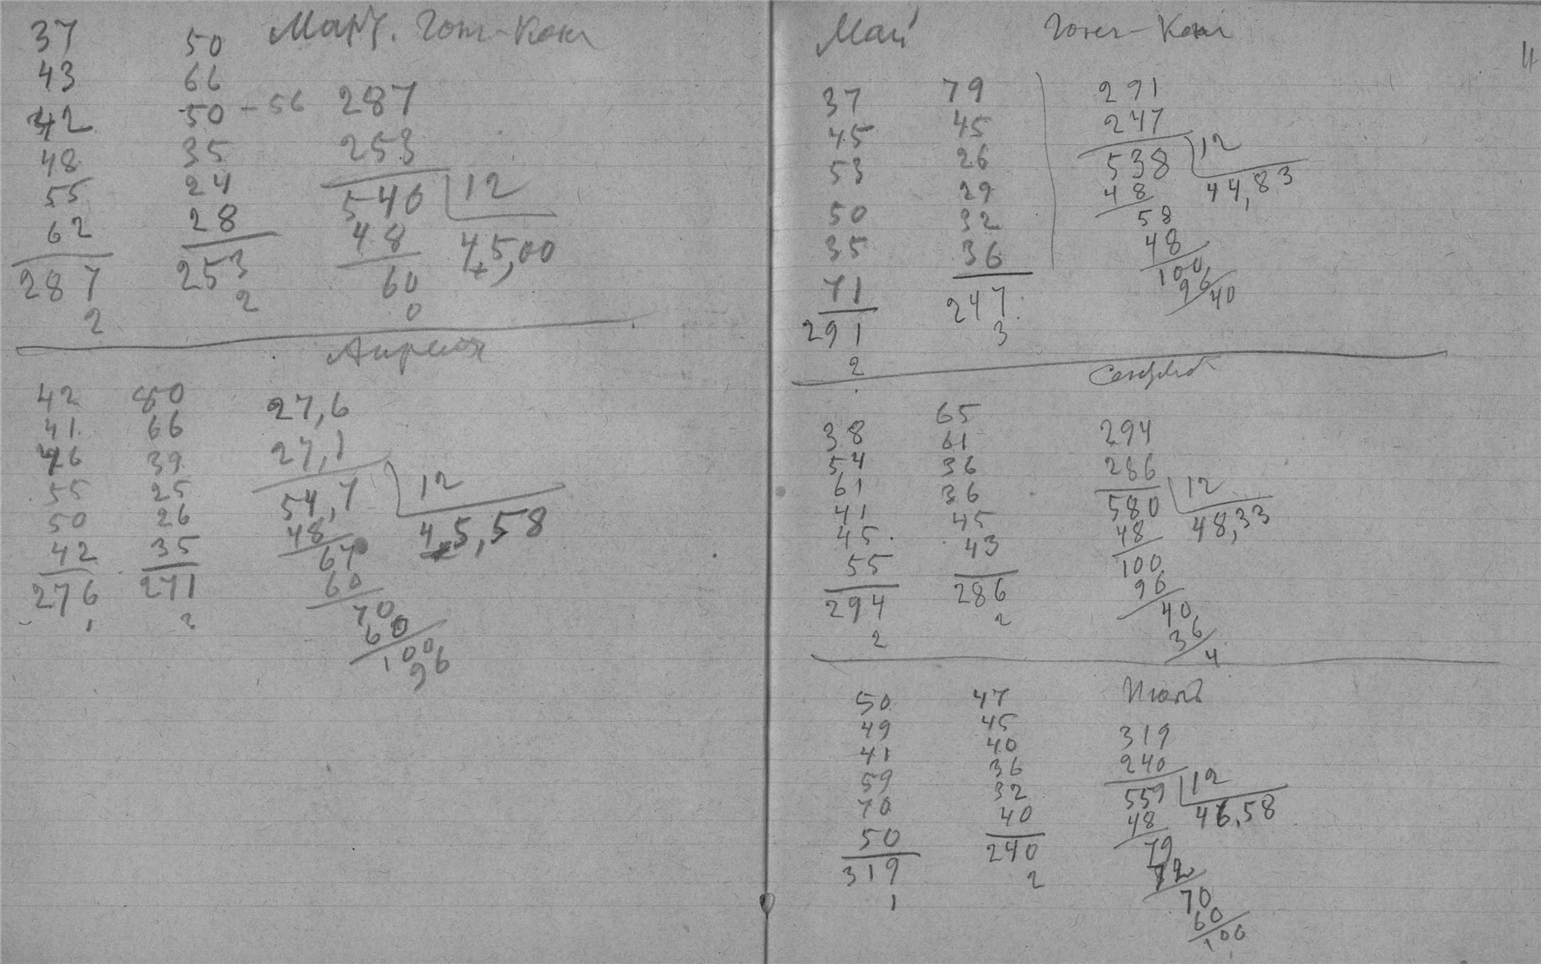 Март. Гонг-Конг
37 50
43 66
42 50-56 287
48 35 253
55 24 540 12
62 28 48 45,00
287 253 60
2 2 0
Апреля
42 50 27,6
41 66 27,1
46 39 54,7 12
55 25 48 45,58
50 26 67
42 35 60
276 271 70
1 2 60
100
96
Май Гонг-Конг 4
37 79 291
45 45 247
53 26 538 12
50 29 48 44,83
35 32 58
71 36 48
291 247 100
2 3 96
40
38 65 294
54 61 286
61 36 580 12
41 36 48 48,33
45 45 100
55 43 96
294 286 40
2 2 36
4
Июль
50 47 319
49 45 240
41 40 559 12
59 36 48 46,58
70 32 79
50 40 72
319 240 70
1 2 60
100